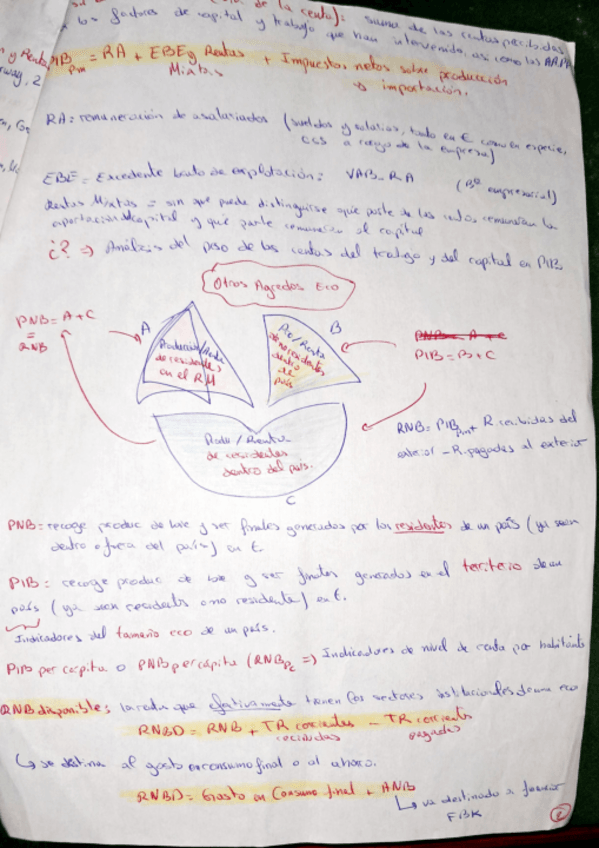 de la renta): suma de las rentas percibidas
los factores de capital y trabajo que han intervenido, así como las AAPP
PIBpm = RA + EBE y Rentas Mixtas + Impuestos netos sobre producción
e importación.
RA: remuneración de asalariados (sueldos y salarios, tanto en € como en especie,
CSS a cargo de la empresa)
EBE = Excedente bruto de explotación: VAB - RA (Bº empresarial)
Rentas Mixtas = sin que pueda distinguirse qué parte de las rentas remuneran la
aportación capital y qué parte remunera al capital
¿? => Análisis del peso de las rentas del trabajo y del capital en PIB
Otros Agregados Eco
PNB = A + C
=
RNB
A
Producción/Renta
de residentes
en el RM
B
Pro/Renta
de no residentes
dentro
de
país
PNB = A + C
PIB = B + C
Produ/Renta
de residentes
dentro del país.
C
RNB = PIBpm + R. recibidas del
exterior - R. pagadas al exterior
PNB = recoge produc de bse y ser finales generados por los residentes de un país (ya sean
dentro o fuera del país) en €.
PIB = recoge produc de bse y ser finales generados en el territorio de un
país (ya sean residents o no residente) en €.
Indicadores del tamaño eco de un país.
PIB per cápita o PNB per cápita (RNBpc => Indicadores de nivel de renta por habitante
RNB disponible: la renta que efectivamente tienen los sectores institucionales de una eco
RNBD = RNB + TR corrientes recibidas - TR corrients pagadas
se destina al gasto en consumo final o al ahorro.
RNBD = Gasto en Consumo final + ANB
va destinado a financiar
FBK
2